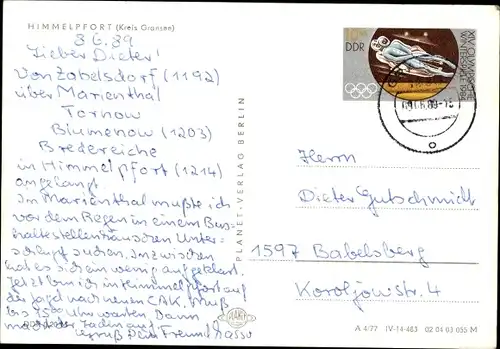 HIMMELPFORT (Kreis Gransee)
8.6.89
Lieber Dieter!
Von Zabelsdorf (1192)
über Marienthal
Tornow
Blumenow (1203)
Bredereiche
in Himmelpfort (1214)
angelangt
In Marienthal mußte ich
vor dem Regen in einem Bus-
haltestellenhäuschen Unter-
schlupf suchen. Inzwischen
hat es sich ein wenig aufgeklärt.
Jetzt bin ich in Himmelpfort auf
der Jagd nach neuen CAK. Muß
bis 15 Uhr warten. Dann
macht der Laden auf.
Gruß Dein Freund Hasso
PLANET-VERLAG BERLIN
10
DDR
XIV. OLYMPISCHE
WINTERSPIELE 1984
Herrn
Dieter Gutschmidt
1597 Babelsberg
Koroljowstr. 4
A 4/77 IV-14-483 02 04 03 055 M